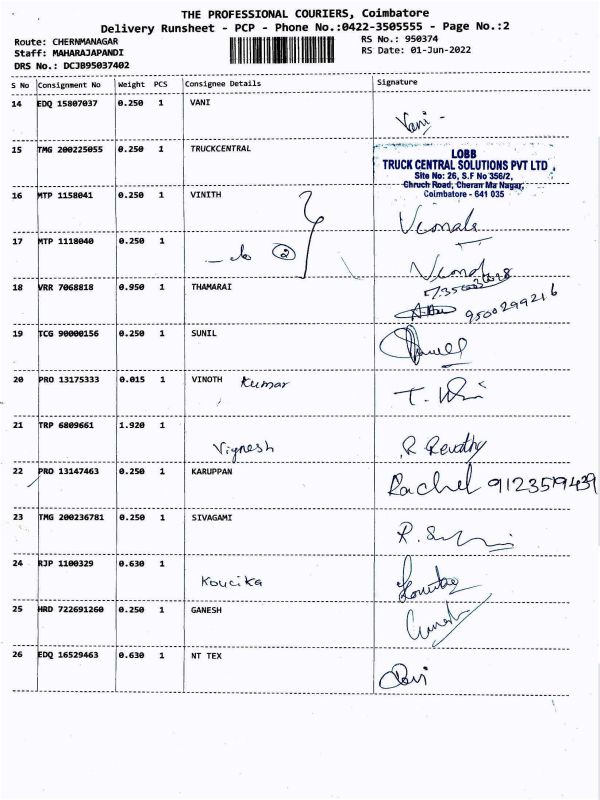 THE PROFESSIONAL COURIERS, Coimbatore
Delivery Runsheet - PCP - Phone No.:0422-3505555 - Page No.:2
Route: CHERNMANAGAR
RS No.: 950374
Staff: MAHARAJAPANDI
RS Date: 01-Jun-2022
DRS No.: DCJB95037402
S No Consignment No Weight PCS Consignee Details Signature
14 EDQ 15807037 0.250 1 VANI Vani -
15 TMG 200225055 0.250 1 TRUCKCENTRAL
LOBB
TRUCK CENTRAL SOLUTIONS PVT LTD
Site No: 26, S.F No 356/2,
Chruch Road, Cheran Ma Nagar,
Coimbatore - 641 035
16 MTP 1158041 0.250 1 VINITH
17 MTP 1118040 0.250 1
2
18 VRR 7068818 0.950 1 THAMARAI
9500299216
19 TCG 90000156 0.250 1 SUNIL
20 PRO 13175333 0.015 1 VINOTH Kumar
21 TRP 6809661 1.920 1
Vignesh R Revathy
22 PRO 13147463 0.250 1 KARUPPAN
Rachel 9123519439
23 TMG 200236781 0.250 1 SIVAGAMI
24 RJP 1100329 0.630 1
Koucika
25 HRD 722691260 0.250 1 GANESH
Ganesh
26 EDQ 16529463 0.630 1 NT TEX